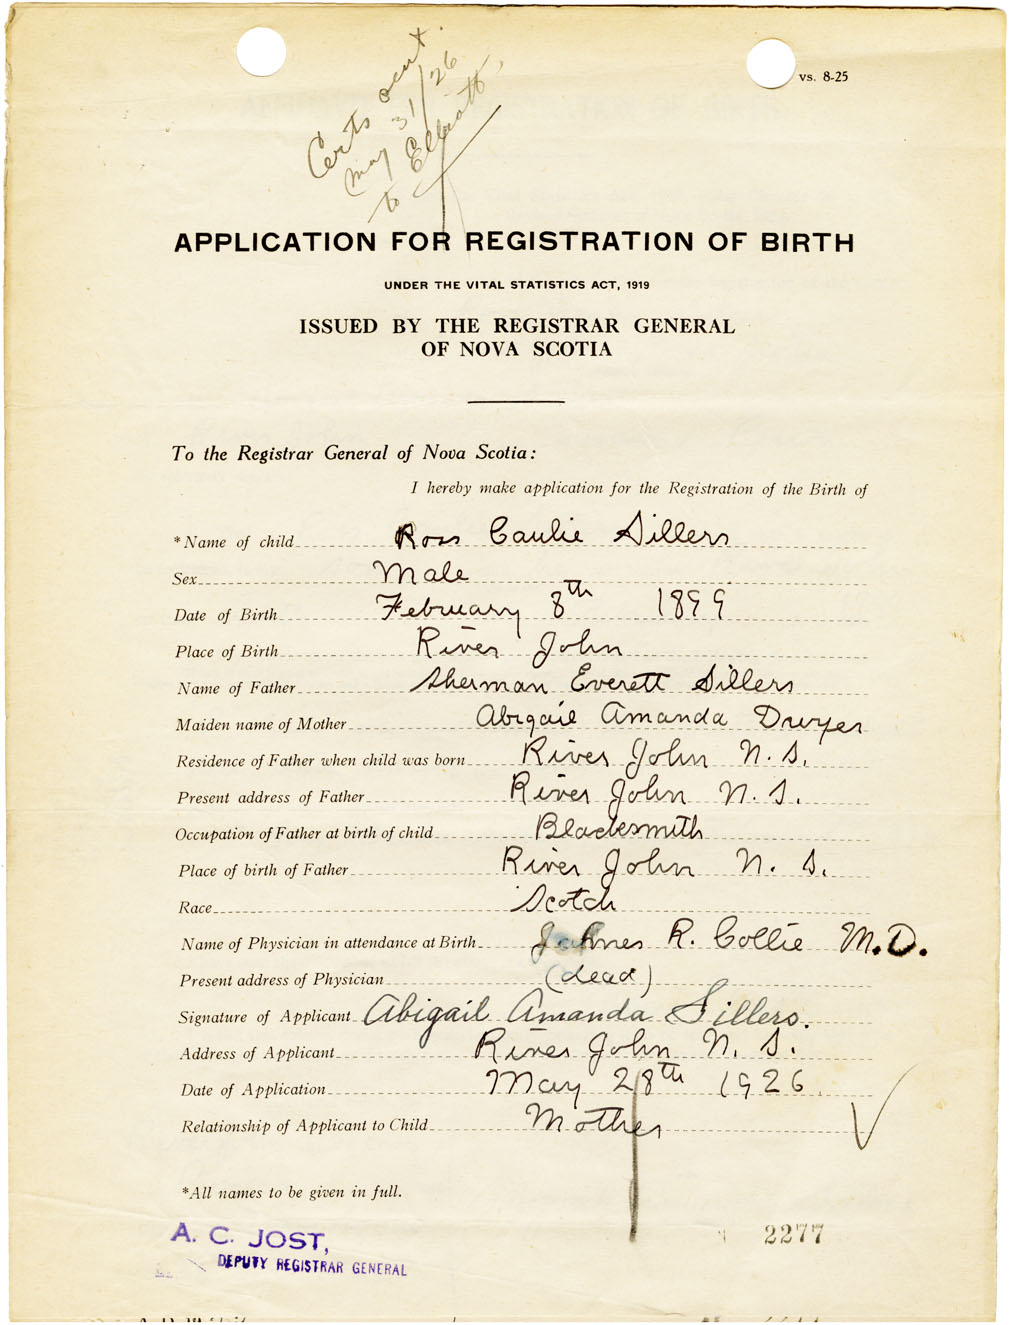 vs. 8-25
Certs sent
May 31/26
to Elliott
APPLICATION FOR REGISTRATION OF BIRTH
UNDER THE VITAL STATISTICS ACT, 1919
ISSUED BY THE REGISTRAR GENERAL
OF NOVA SCOTIA
To the Registrar General of Nova Scotia:
I hereby make application for the Registration of the Birth of
*Name of child Ross Caulie Sillers
Sex Male
Date of Birth February 8th 1899
Place of Birth River John
Name of Father Sherman Everett Sillers
Maiden name of Mother Abigail Amanda Dwyer
Residence of Father when child was born River John N. S.
Present address of Father River John N. S.
Occupation of Father at birth of child Blacksmith
Place of birth of Father River John N. S.
Race Scotch
Name of Physician in attendance at Birth R. Collie M.D.
Present address of Physician (dead)
Signature of Applicant Abigail Amanda Sillers.
Address of Applicant River John N. S.
Date of Application May 28th 1926
Relationship of Applicant to Child Mother
*All names to be given in full.
A. C. JOST,
DEPUTY REGISTRAR GENERAL
2277